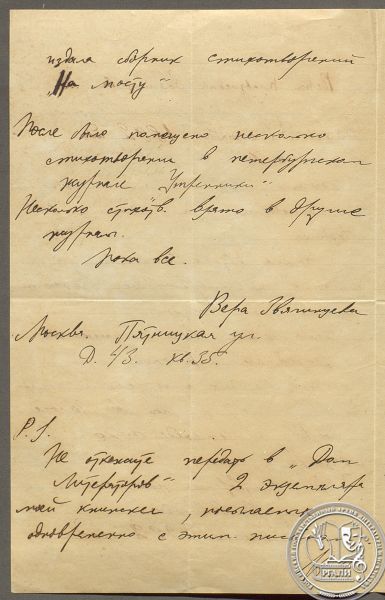 издала сборник стихотворений
„На мосту“
После было помещено несколько
стихотворений в петербургском
журнале „Утренники“
Несколько стихотв. взято в другие
журналы.
Пока все.
Вера Звягинцева
Москва. Пятницкая ул.
Д. 43. кв. 35.
P.S.
Не откажите передать в „Дом
Литераторов“ 2 экземпляра
моей книжки,
одновременно с этим
РГАЛИ